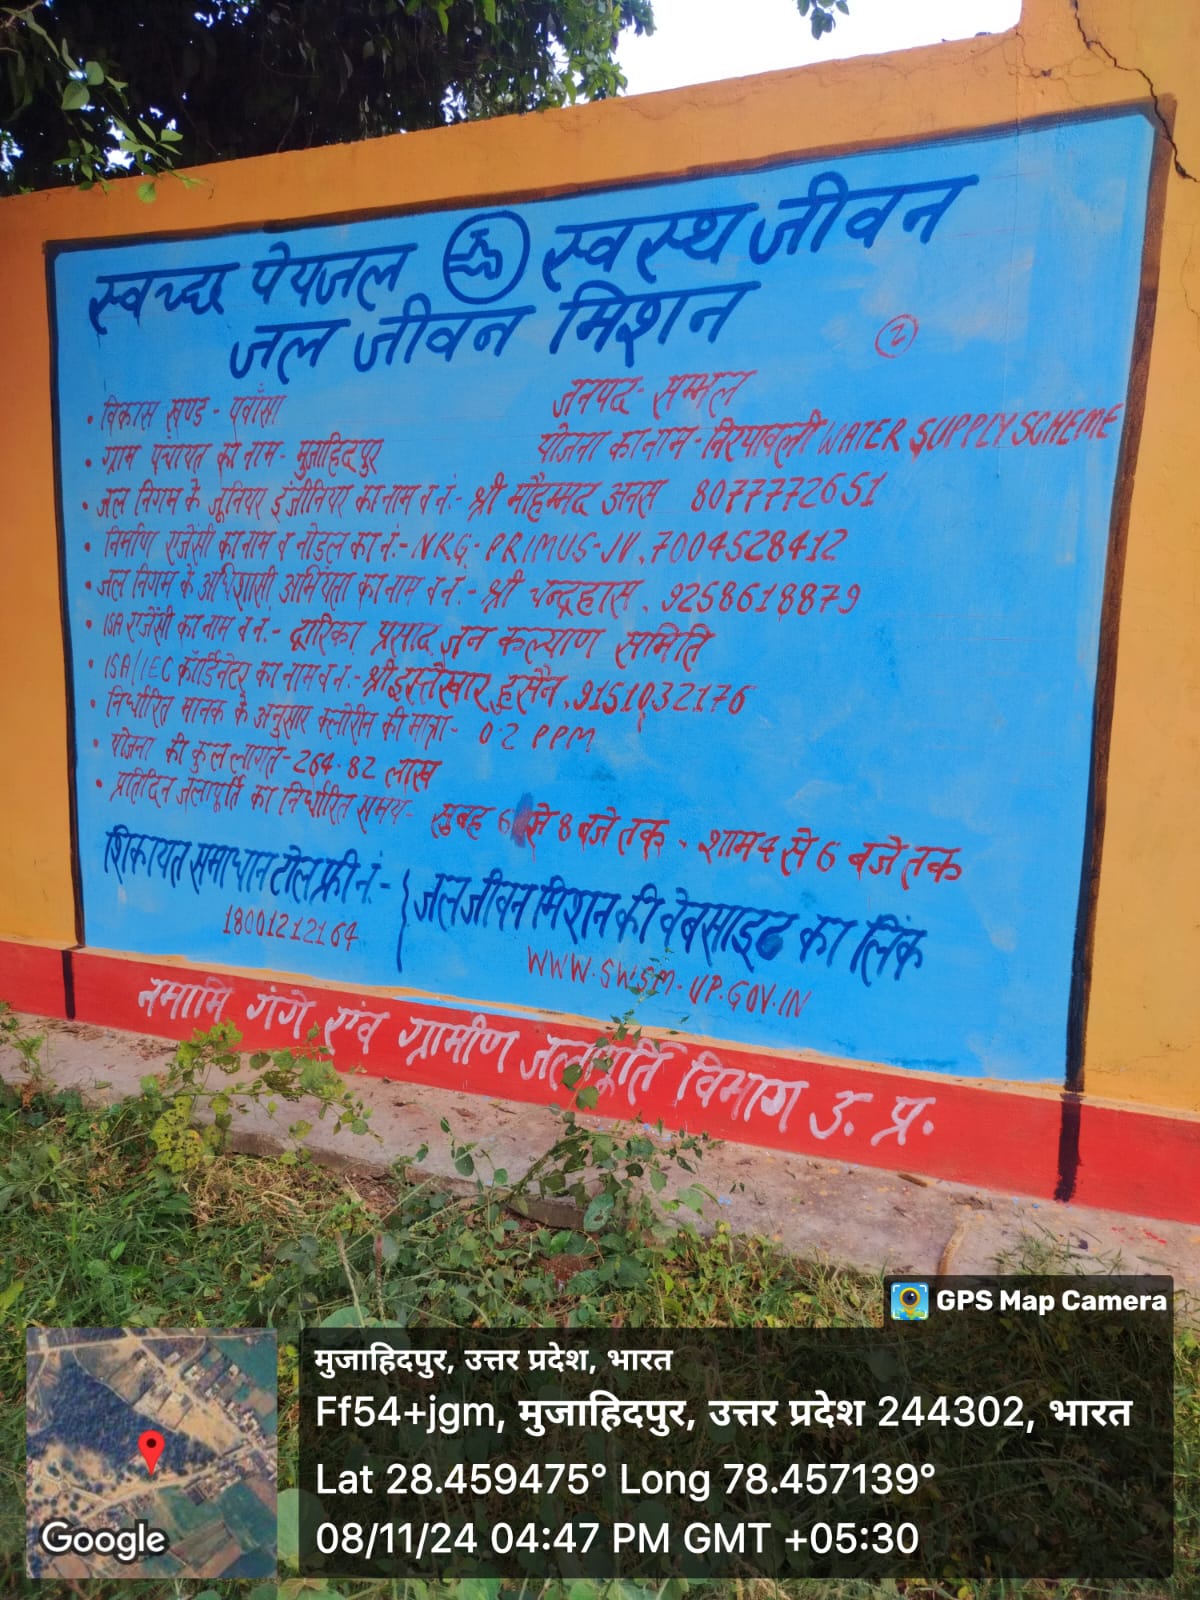 स्वच्छ पेयजल स्वस्थ जीवन
जल जीवन मिशन
2
• विकास खण्ड - पवाँसा
जनपद - सम्भल
• ग्राम पंचायत का नाम - मुजाहिदपुर
योजना का नाम - निरयावली WATER SUPPLY SCHEME
• जल निगम के जूनियर इंजीनियर का नाम व नं. - श्री मौहम्मद अनस 8077772651
• निर्माण एजेंसी का नाम व नोडल का नं. - NKG - PRIMUS - JV, 7004528412
• जल निगम के अधिशासी अभियंता का नाम व नं. - श्री चन्द्रहास, 9258618879
• ISA एजेंसी का नाम व नं. - द्वारिका प्रसाद जन कल्याण समिति
• ISA/IEC कॉर्डिनेटर का नाम व नं. - श्री इफ्तेखार हुसैन, 9151032176
• निर्धारित मानक के अनुसार क्लोरीन की मात्रा - 0.2 PPM
• योजना की कुल लागत - 264.82 लाख
• प्रतिदिन जलापूर्ति का निर्धारित समय - सुबह 6 से 8 बजे तक - शाम 4 से 6 बजे तक
शिकायत समाधान टोल फ्री नं. -
18001212164
जल जीवन मिशन की वेबसाइट का लिंक
WWW.SWSM-UP.GOV.IN
नमामि गंगे एवं ग्रामीण जलापूर्ति विभाग उ. प्र.
GPS Map Camera
मुजाहिदपुर, उत्तर प्रदेश, भारत
Ff54+jgm, मुजाहिदपुर, उत्तर प्रदेश 244302, भारत
Lat 28.459475° Long 78.457139°
08/11/24 04:47 PM GMT +05:30
Google